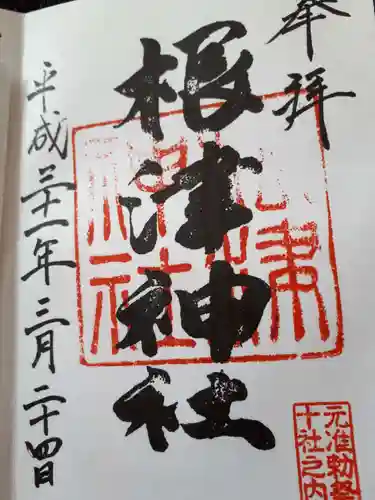 奉拝
根津神社
根津神社
元准勅祭
十社之内
平成三十一年三月二十四日